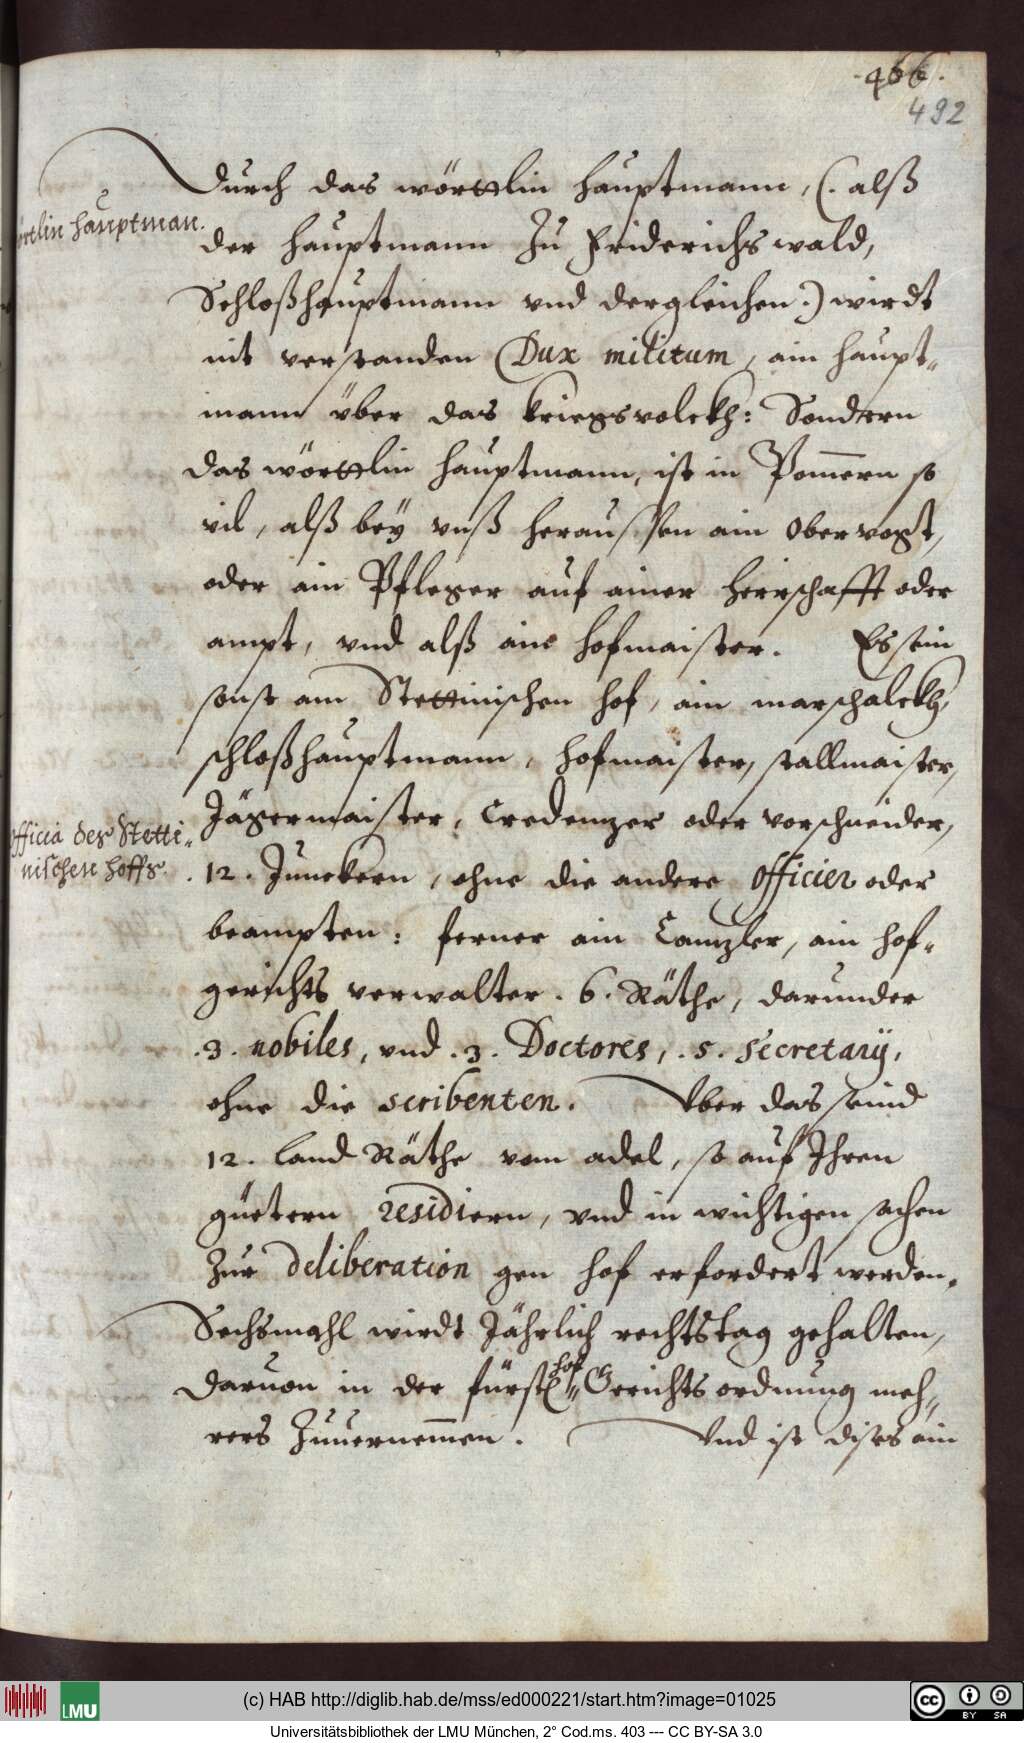 466.
492
Durch das wörttlin hauptmann, (. alß
örtlin hauptman.
der hauptmann Zu Friderichswald,
Schloßhauptmann vnd dergleichen.) wirdt
nit verstanden Dux militum, ain haupt-
mann über das kriegsvolckh: Sondern
das wörttlin hauptmann, ist in Pom̄ern so
vil, alß bey vnß heraussen ain Obervogt,
oder ain Pfleger auf ainer herrschafft oder
ampt, vnd alß ain hofmaister. Es sein
sonst am Stettinischen hof, ain marschalckh,
schloßhauptmann, hofmaister, stallmaister,
Jägermaister, Credenzer oder vorschneider,
officia des Stetti-
nischen hoffs.
. 12. Junckern, ohne die andere officier oder
beampten: ferner ain Canzler, ain hof-
gerichts verwalter. 6. Räthe, darunder
.3. nobiles, vnd .3. Doctores, .5. secretarij,
ohne die scribenten. Vber das seind
12. Land Räthe vom adel, so auf Ihren
güetern residiern, vnd in wichtigen sachen
Zur deliberation gen hof erfordert werden.
Sechsmahl wirdt Jährlich rechtstag gehalten,
daruon in der fürstl. hof Gerichtsordnung meh-
rers Zuuernem̄en. Vnd ist dises ain
(c) HAB http://diglib.hab.de/mss/ed000221/start.htm?image=01025
LMU
cc BY SA
Universitätsbibliothek der LMU München, 2° Cod.ms. 403 --- CC BY-SA 3.0